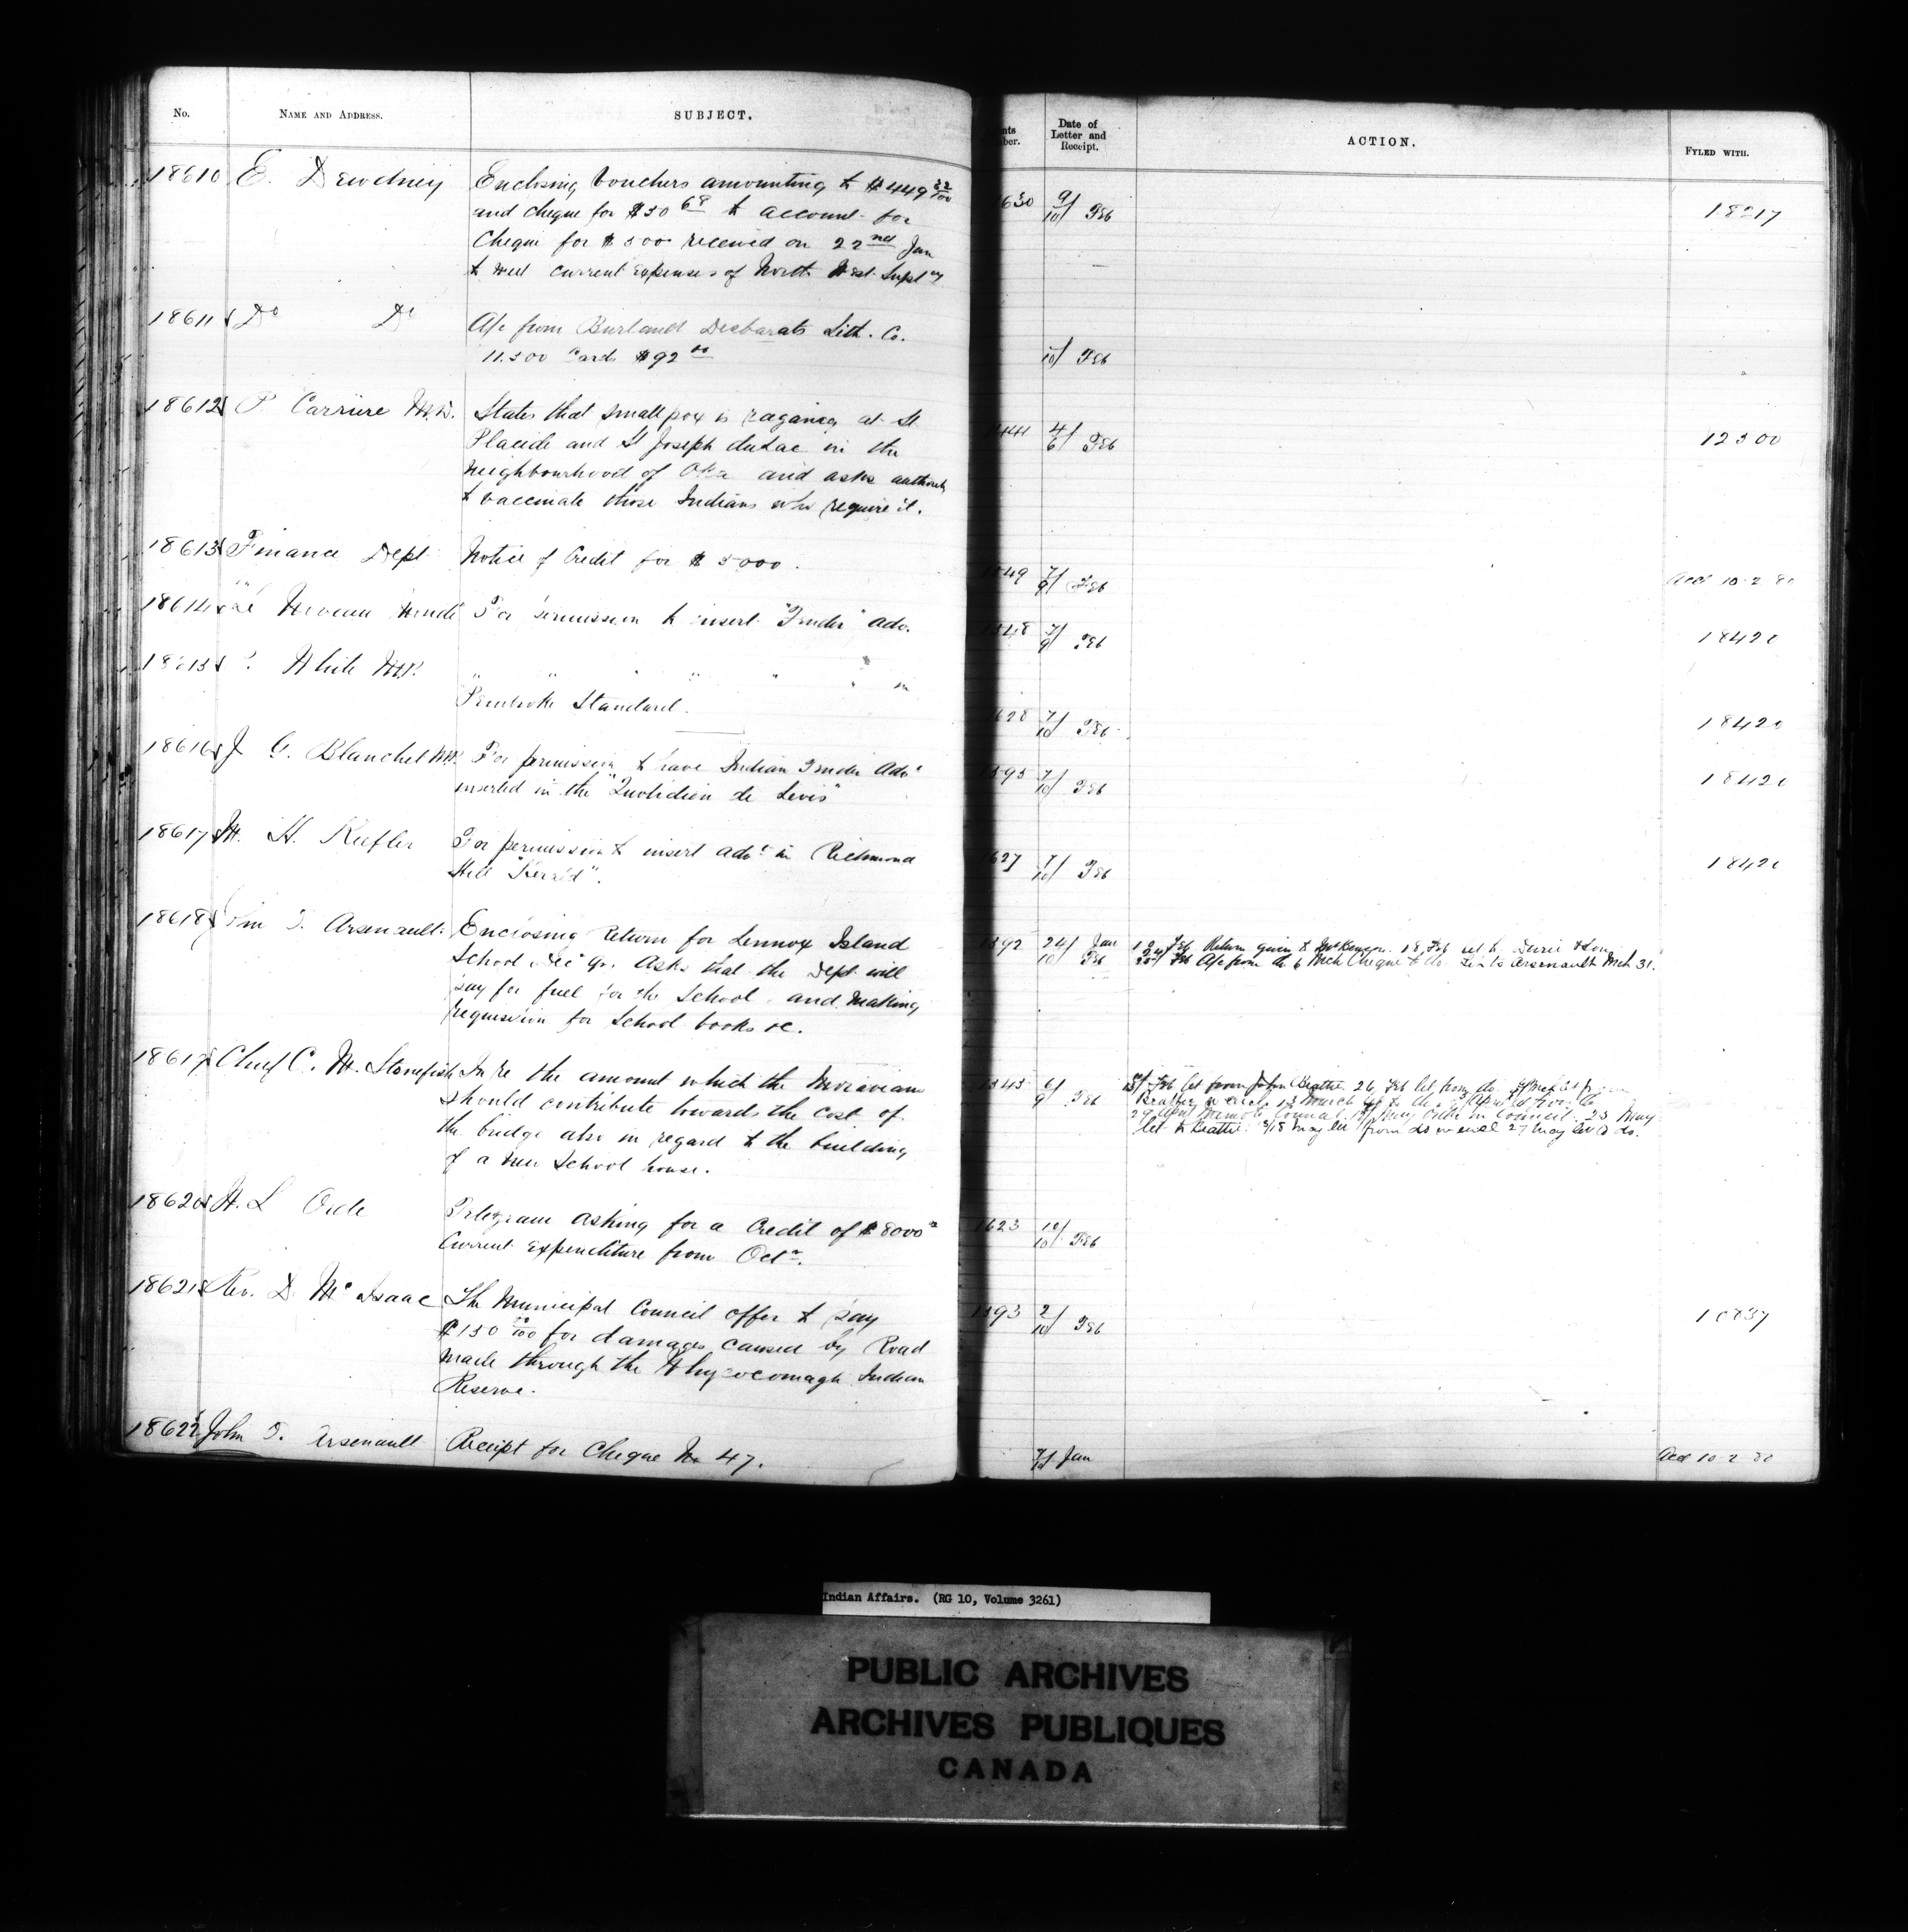 No. NAME AND ADDRESS. SUBJECT. Date of Letter and Receipt. ACTION. FYLED WITH.
18610 E. Dewdney Enclosing Vouchers amounting to $449 22/100 1630 9/10 Feb 18217
and cheque for $50 68 to account for
Cheque for $500 received on 22nd Jan
to meet current expenses of North West Supt cy
18611 Do Do A/c from Burland Desbarats Lith. Co. 10/ Feb
11.500 Cards $92 00
18612 P. Carriere M.D. States that small pox is raganig at St 4/6 Feb 12500
Placide and St Joseph du Lac in the
neighbourhood of Oka and asks authority
to vaccinate those Indians who require it.
18613 Finance Dept Notice of Credit for $5000. 7/9 Feb Acd 10-2 80
18614 Le Nouveau Monde For permission to insert "Tender" adv. 7/9 Feb 18420
White M.P. " " " " " " in
Pembroke Standard. 7/10 Feb 18420
18616 J G. Blanchet M.P. For permission to have Indian Tender Advt 7/10 Feb 18420
inserted in the "Quotidien de Levis"
18617 M. H. Keefler For permission to insert advt in Richmond 1627 7/10 Feb 18420
Hill "Herald".
18618 John T. Arsenault Enclosing Return for Lennox Island 24/10 Jan Feb Feb Return given to McKenzie. 18 Feb let to Durie & Son
School Dec qr. Asks that the Dept will Feb A/c from do 6 Mch Cheque to do. Let to Arsenault Mch 31.
pay for fuel for the School, and making
requisition for School books &c.
18619 Chief C. M. Stonefish In re the amount which the Moravians 6/9 Feb Feb let from John Beattie 26 Feb let from do
should contribute towards the cost of
the bridge also in regard to the building 29 April Memo to Council. May Order in Council. 25 May
of a new School house. let to Beattie. 27 May let to do.
18620 H. L Orde Telegram asking for a Credit of $8000 1623 10/10 Feb
Current Expenditure from Oct.
18621 Rev. D. McIsaac The Municipal Council offer to pay 2/10 Feb
$150 00/100 for damages caused by Road
made through the Whycocomagh Indian
Reserve.
18622 John T. Arsenault Receipt for Cheque No 47. 7/10 Jan Acd 10-2 80
Indian Affairs. (RG 10, Volume 3261)
PUBLIC ARCHIVES
ARCHIVES PUBLIQUES
CANADA